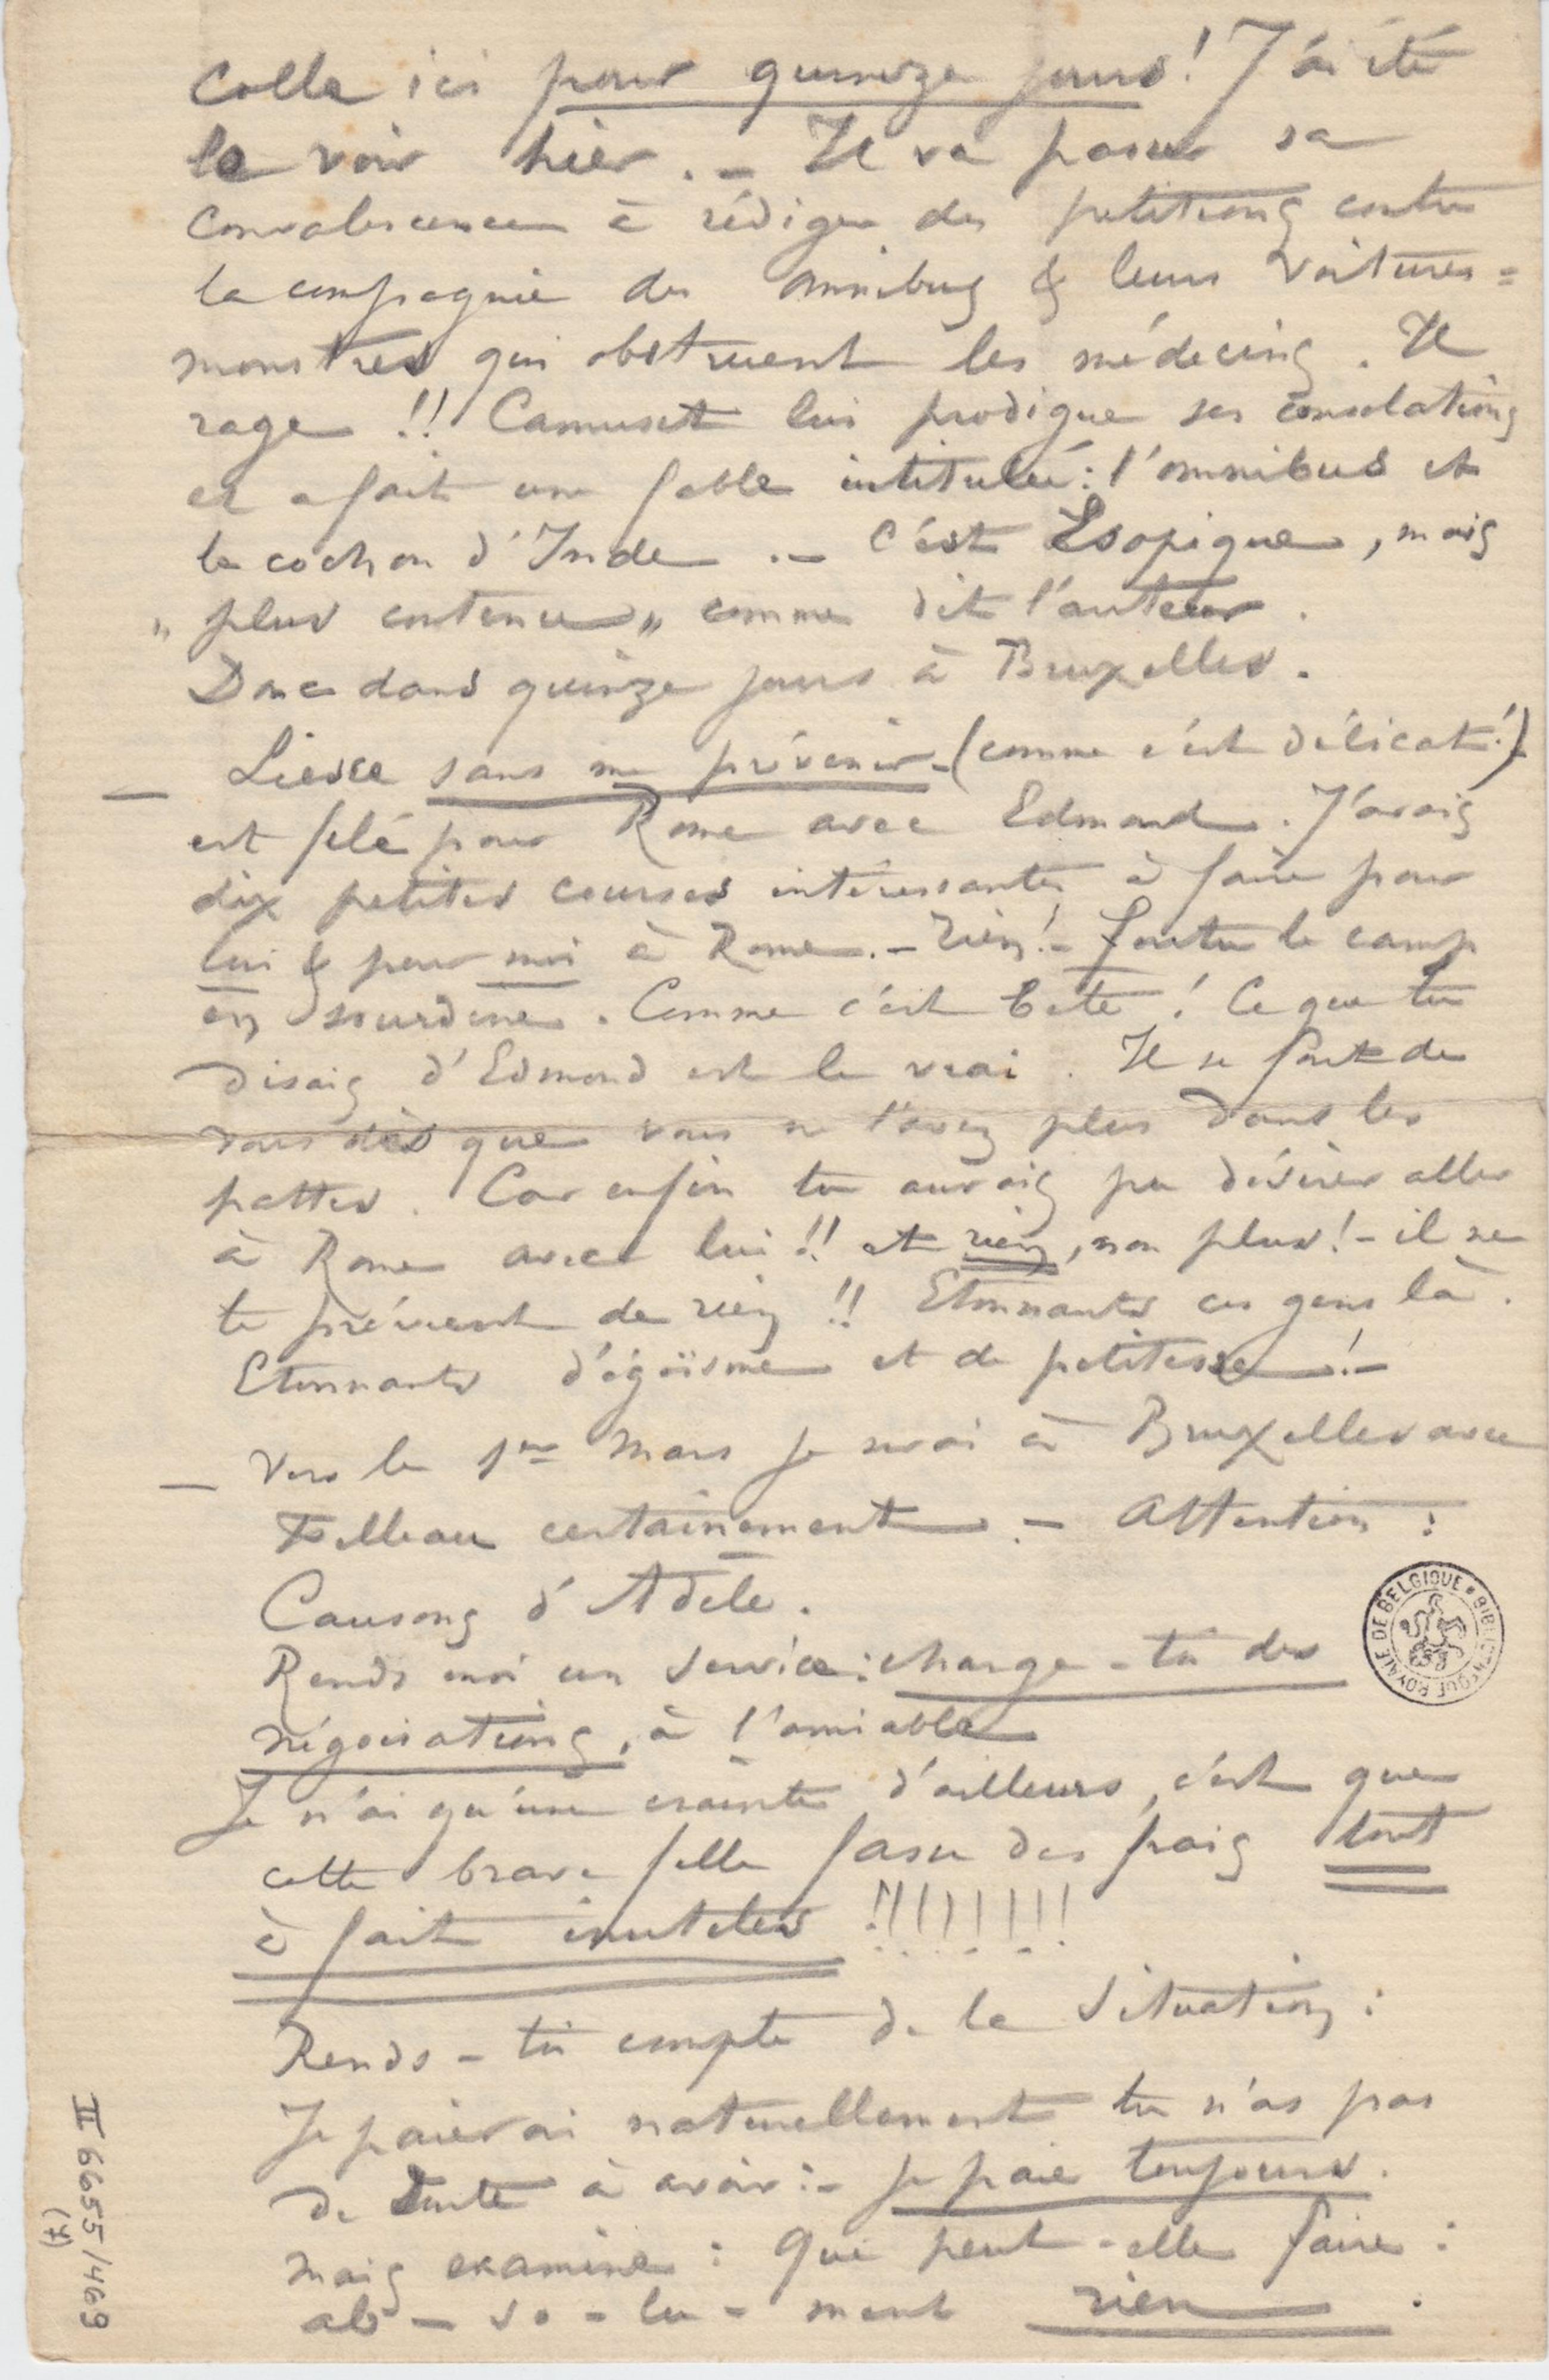 colle ici pour quinze jours! J'ai été
le voir hier. – Il va passer sa
convalescence à rédiger des petitions contre
la compagnie des omnibus & leurs voitures =
monstres qui obstruent les médecins. Il
rage!! Camuset lui prodigue ses consolations
et a fait une fable intitulée: l'omnibus et
le cochon d'Inde. – C'est Esopique, mais
„ plus contenu „ comme dit l'auteur.
Donc dans quinze jours à Bruxelles.
– Liesse sans me prévenir – (comme c'est délicat!)
est filé pour Rome avec Edmond. J'avais
dix petites courses intéressantes à faire pour
lui & pour moi à Rome. – Rien! – Foutu le camp
en sourdine. Comme c'est bête! Ce que tu
disais d'Edmond est le vrai. Il se fout de
vous dès que vous ne l'avez plus dans les
pattes. Car enfin tu aurais pu désirer aller
à Rome avec lui!! et rien, non plus! – il ne
te prévient de rien!! Etonnants ces gens là.
Etonnants d'égoïsme et de petitesse! –
– Vers le 1er Mars je serai à Bruxelles avec
Filleau certainement. – Attention:
Causons d'Adèle.
Rends moi un service: charge-tu des
négociations, à l'amiable
Je n'ai qu'une crainte d'ailleurs, c'est que
cette brave fille fasse des frais tout
à fait inutiles !!!!!!!!
Rends-tu compte de la situation:
Je paierai naturellement tu n'as pas
de doute à avoir: – je paie toujours.
Mais examine: Que peut-elle faire:
ab – so – lu – ment rien.
BIBLIOTHEQUE ROYALE DE BELGIQUE
II 6655/469
(4)